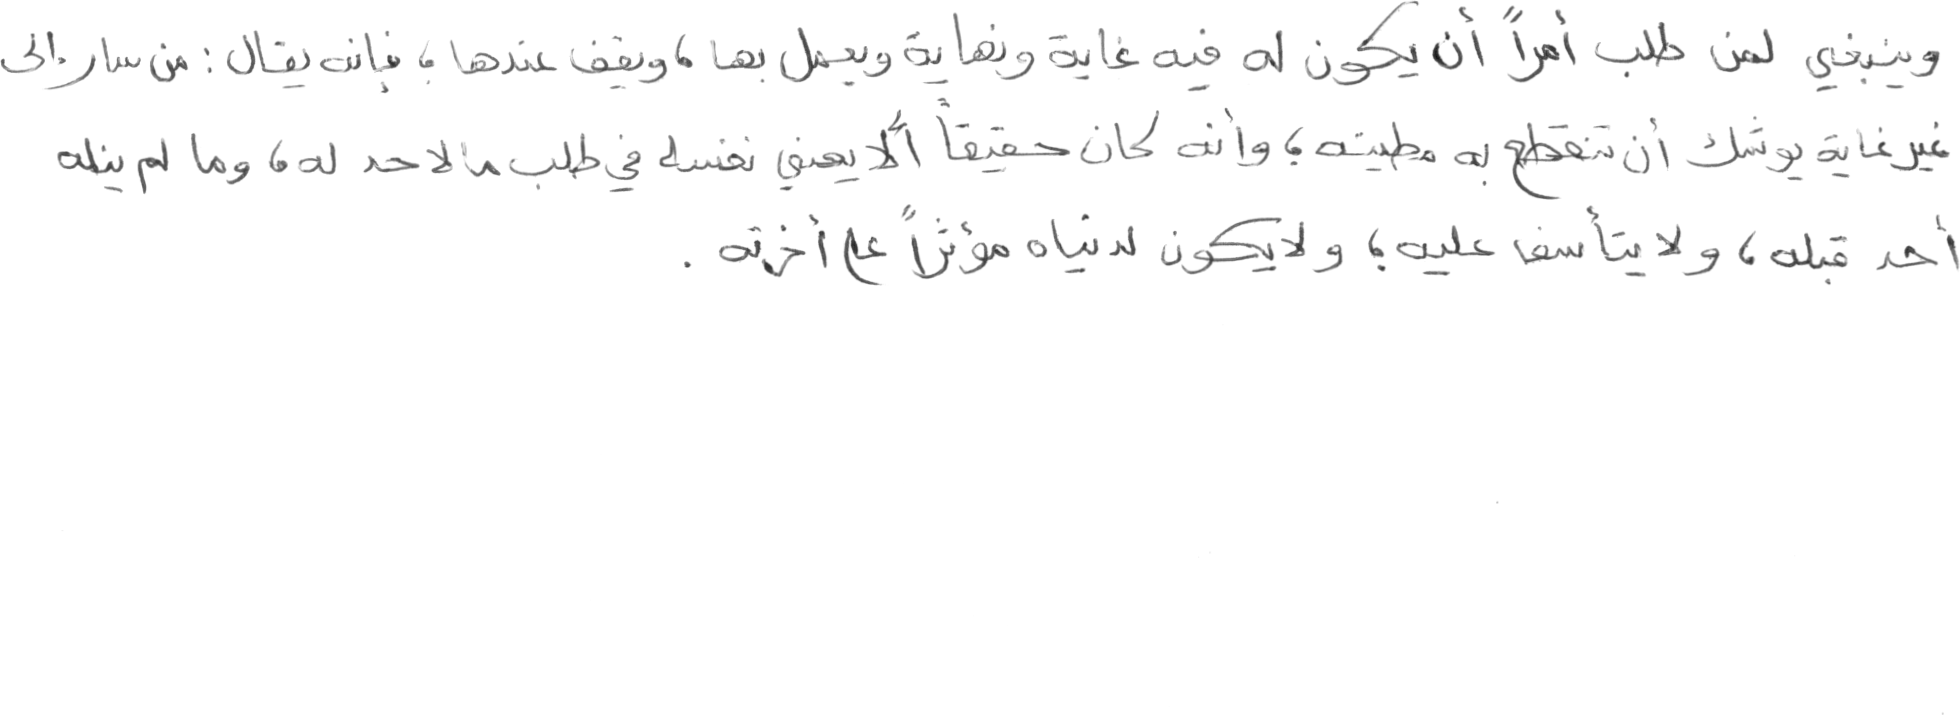 وينبغي لمن طلب أمراً أن يكون له فيه غاية ونهاية ويعمل بها ، ويقف عندها ، فإنه يقال : من سار إلى
غير غاية يوشك أن تنقطع به مطيته ؛ وأنه كان حقيقاً ألا يعني نفسه في طلب ما لا حد له ، وما لم ينله
أحد قبله ، ولا يتأسف عليه ؛ ولا يكون لدنياه مؤثراً على أخرته .